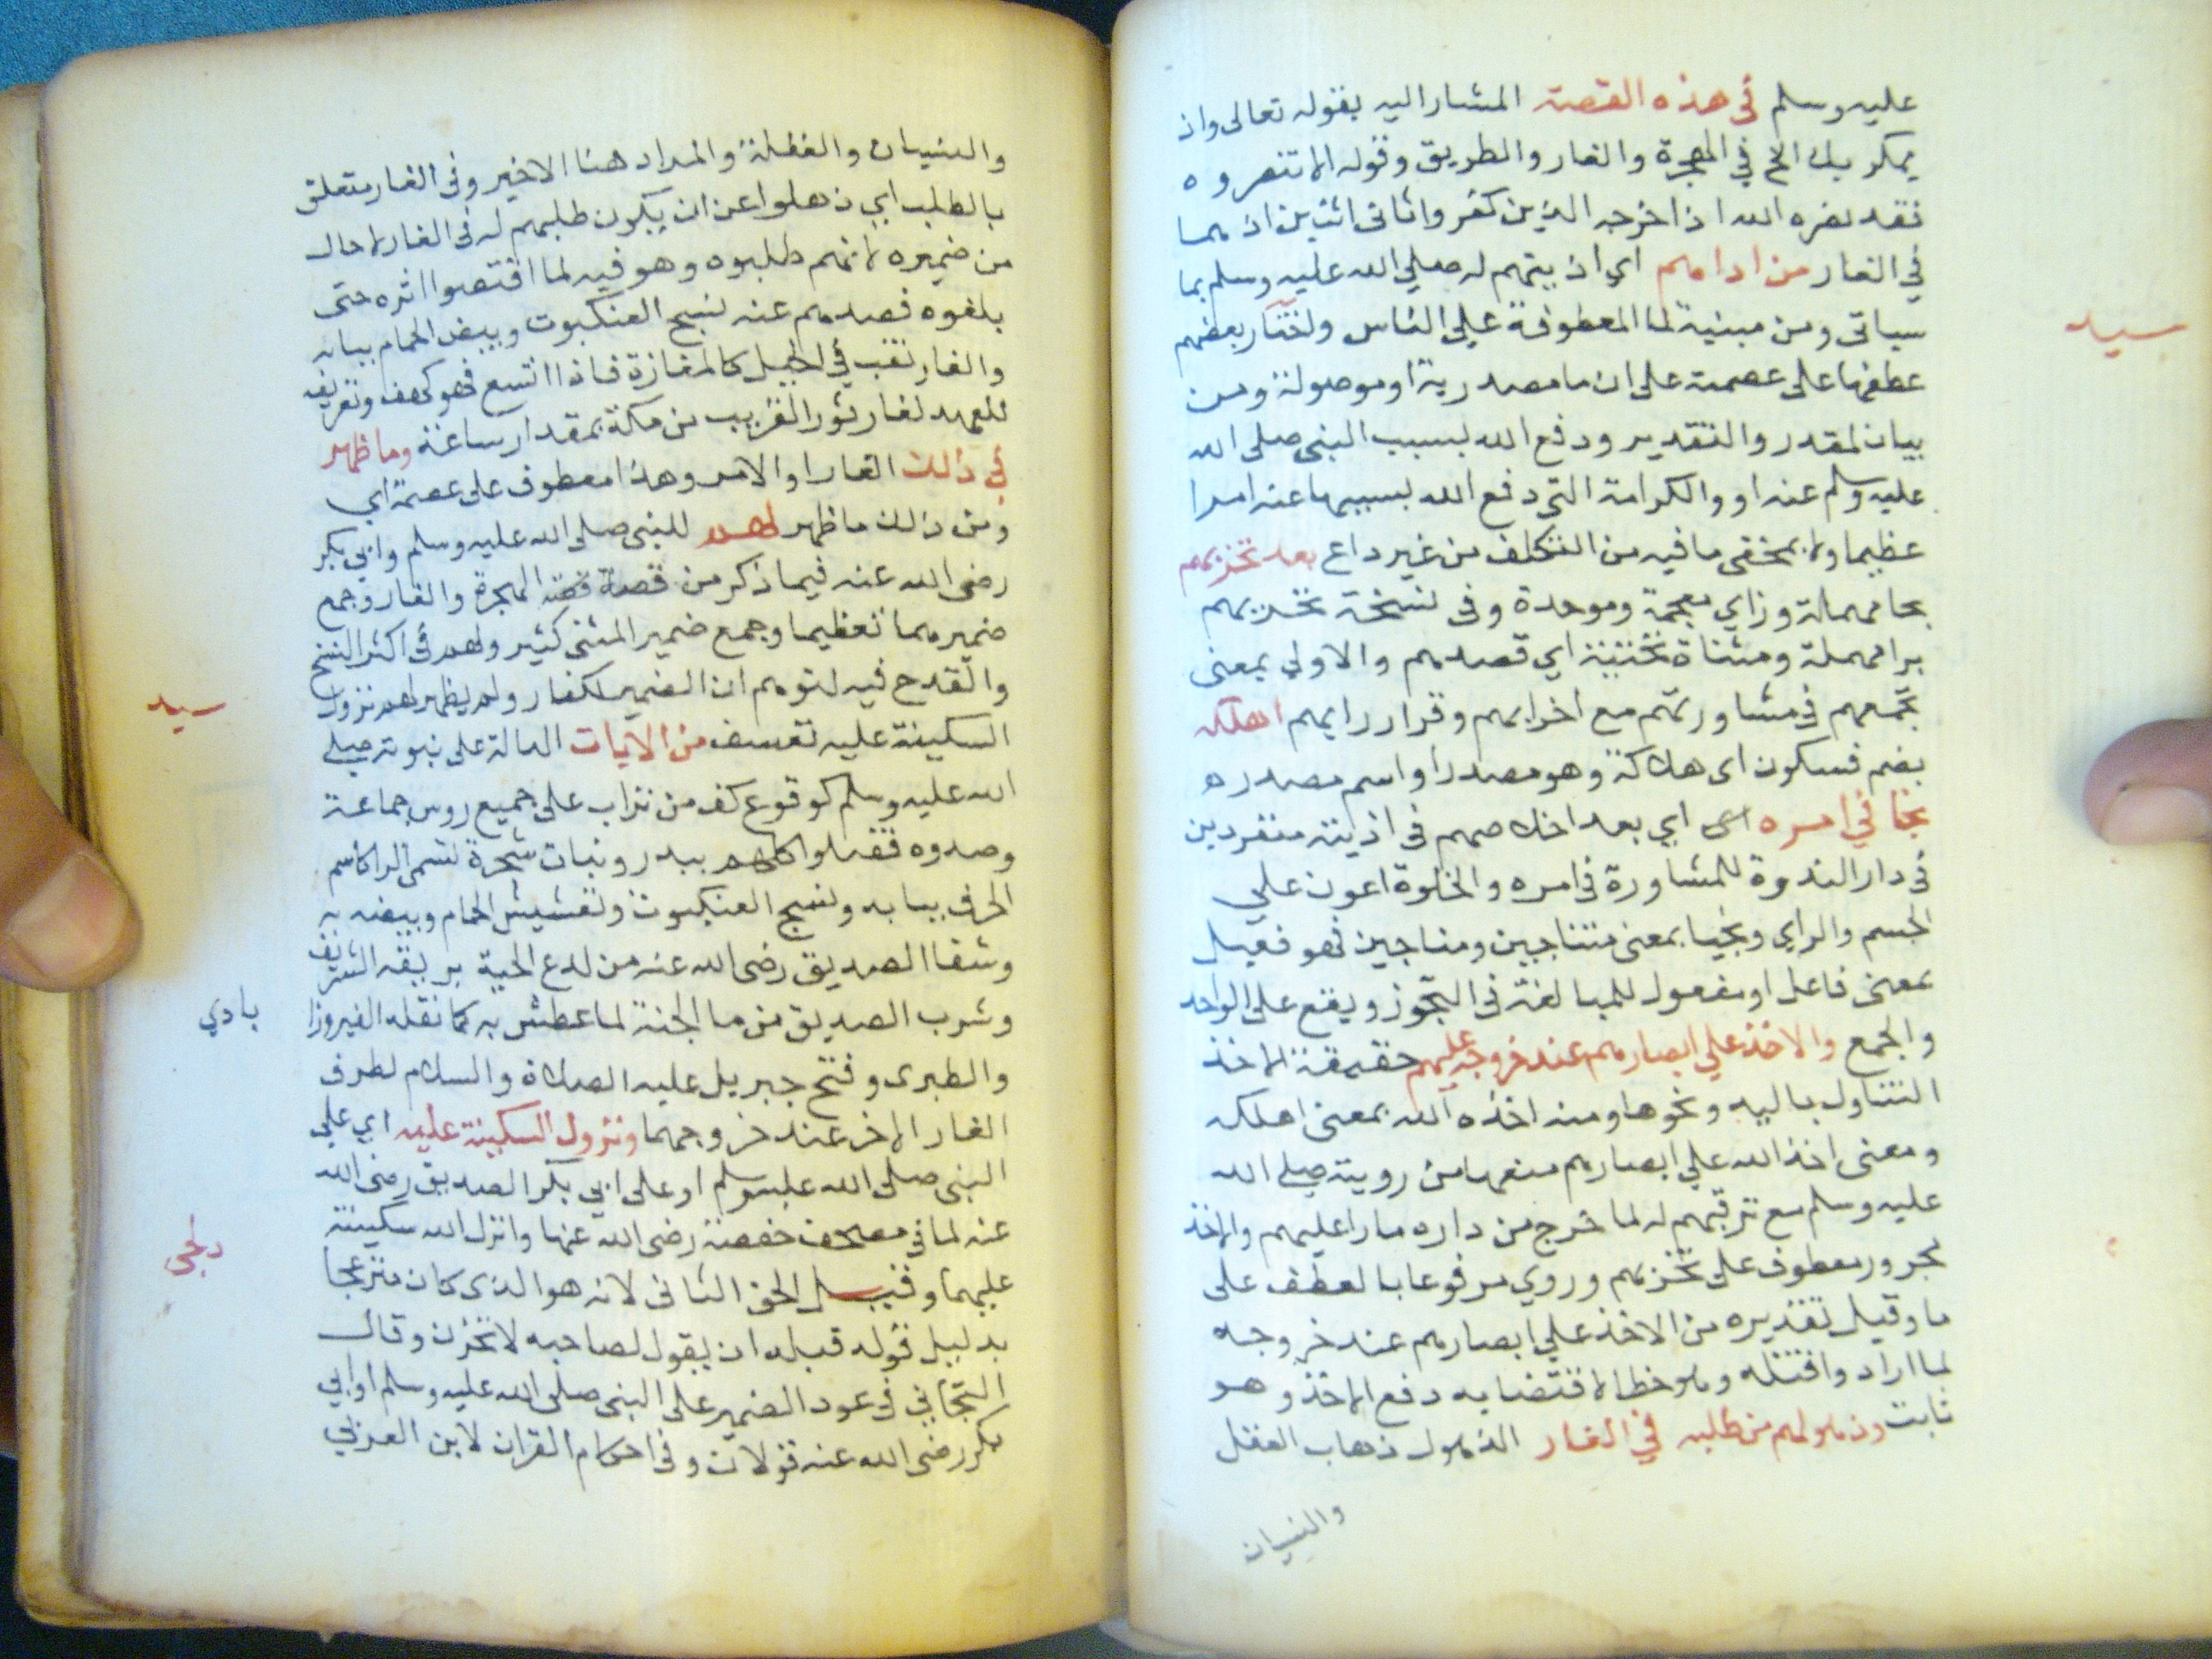 عليه وسلم في هذه القصة المشار اليه بقوله تعالى واذ
يمكر بك الخ في الهجرة والغار والطريق وقوله الا تنصروه
فقد نصره الله اذ اخرجه الذين كفروا ثاني اثنين اذ هما
في الغار من اداهم اي اذيتهم له صلي الله عليه وسلم بما
سياتي ومن مبنية لما المعطوفة علي الناس واختار بعضهم
سيد
عطفها على عصمة على ان ما مصدرية او موصولة ومن
بيان لمقدر والتقدير ودفع الله بسبب النبي صلى الله
عليه وسلم عنه او والكرامة التي دفع الله بسببها عنه امرا
عظيما ولا يخفى ما فيه من التكلف من غير داع بعد تحزبهم
بحا مهملة وزاي معجمة وموحدة وفي نسخة تحريهم
برا مهملة ومثناة تحتية اي قصدهم والاولي بمعنى
تجمعهم في مشاورتهم مع احزابهم وقرار رايهم لهلكه
بضم فسكون اى هلاكه وهو مصدر او اسم مصدر ه
نجيا في امره اي بعد اخلاصهم في اذيته منفردين
في دار الندوة للمشاورة في امره والخلوة اعون علي
الجسم والراي ونجيا بمعنى متناجين ومناجين فهو فعيل
بمعنى فاعل او مفعول للمبالغة في التجوز ويقع على الواحد
والجمع والاخذ علي ابصارهم عند خروجه عليهم حقيقة الاخذ
التناول باليد ونحوها ومنه اخذه الله بمعنى اهلكه
ومعنى اخذ الله علي ابصارهم منعها من رويته صلي الله
عليه وسلم مع ترقبهم له لما خرج من داره مارا عليهم والاخذ
مجرور معطوف على تحزبهم وروي مرفوعا بالعطف على
ما وقيل تقديره من الاخذ علي ابصارهم عند خروجه
لما ارادوا قتله وهو خطا لاقتضايه دفع الاخذ وهو
ثابت وذهولهم من طلبه في الغار الذهول ذهاب العقل
والنسيان
والنسيان والغفلة والمراد هنا الاخير وفي الغار متعلق
بالطلب اي ذهلوا عن ان يكون طلبهم له في الغار لا حال
من ضميره لانهم طلبوه وهو فيه لما اقتصوا اثره حتى
بلغوه فصدهم عنه نسج العنكبوت وبيض الحمام ببابه
والغار نقب في الجبل كالمغارة فاذا اتسع فهو كهف وتعريفه
للعهد لغار ثور القريب من مكة بمقدار ساعة وما ظهر
في ذلك الغار او الامر وهذا معطوف على عصمة اي
ومن ذلك ما ظهر لهم للنبي صلى الله عليه وسلم وابي بكر
رضى الله عنه فيما ذكر من قصة الهجرة والغار وجمع
ضميرهما تعظيما وجمع ضمير المثنى كثير ولهم في اكثر النسخ
والقدح فيه لتوهم ان الضمير لكفار ولم يظهر لهم نزول
سيد
السكينة عليه تعسف من الآيات الدالة على نبوته صلي
الله عليه وسلم كوقوع كف من تراب على جميع روس جماعة
وصدوه فقتلوا كلهم ببدر ونبات شجرة تسمى الرا كاسم
الحرف ببابه ونسج العنكبوت وتعشيش الحمام وبيضه به
وشفا الصديق رضى الله عنه من لدع الحية بريقه الشريف
وشرب الصديق من ما الجنة لما عطش به كما نقله الفيروزا
بادي
والطبرى وفتح جبريل عليه الصلاة والسلام لطرف
الغار الاخر عند خروجهما ونزول السكينة عليه اي علي
النبي صلى الله عليه وسلم او على ابي بكر الصديق رضى الله
عنه لما في مصحف حفصة رضى الله عنها وانزل الله سكينته
دلجى
عليهما وقيل الحق الثاني لانه هو الذي كان منزعجا
بدليل قوله قبله اذ يقول لصاحبه لا تحزن وقال
التجاني في عود الضمير على النبي صلى الله عليه وسلم او ابي
بكر رضى الله عنه قولان وفي احكام القران لابن العربي